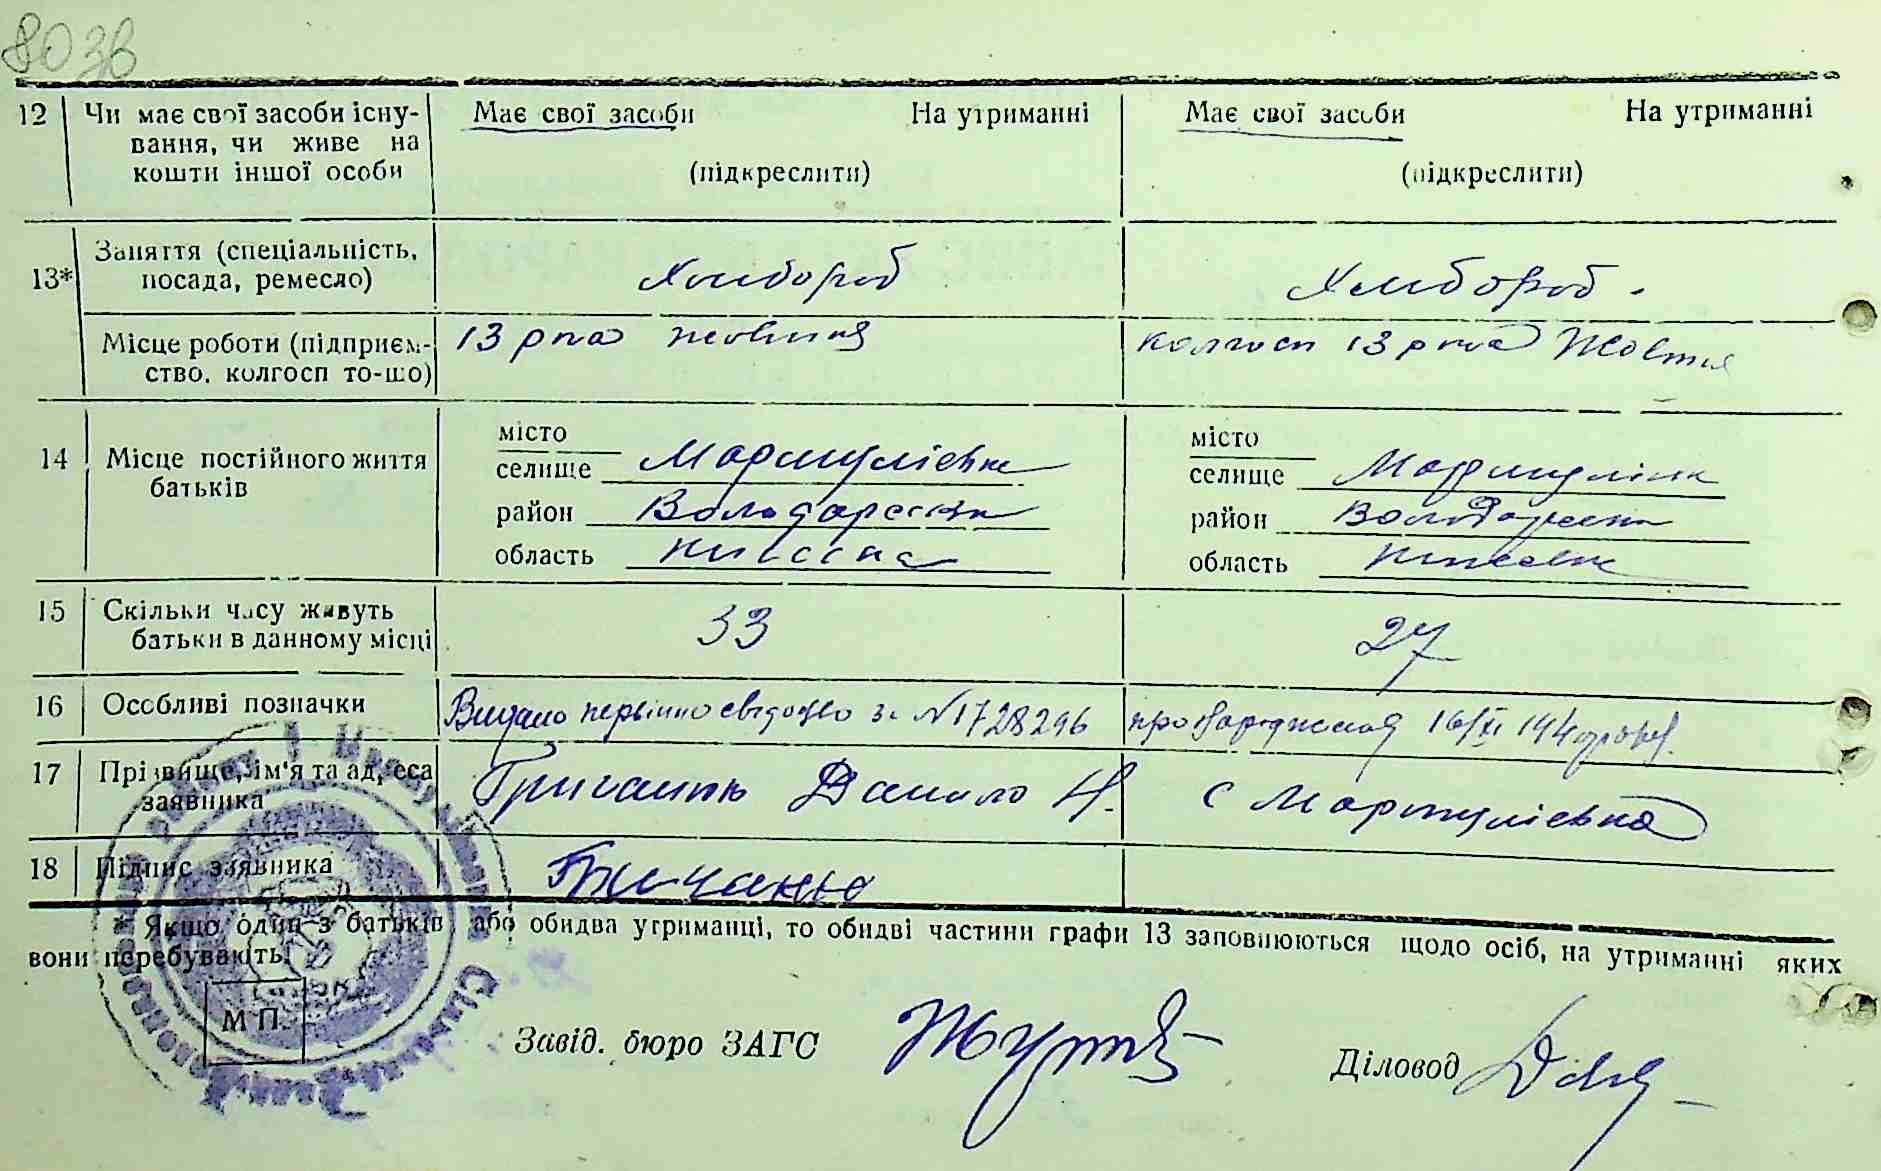 803в
12 Чи має свої засоби існу- Має свої засоби На утриманні Має свої засоби На утриманні
вання, чи живе на
кошти іншої особи (підкреслити) (підкреслити)
13* Заняття (спеціальність, Хлібороб Хлібороб.
посада, ремесло)
Місце роботи (підприєм- 13 рпа жовтня колгосп 13 рпа Жовтня
ство, колгосп то-що)
14 Місце постійного життя місто місто
батьків селище Мармуліевка селище Мармулівка
район Володарська район Володарська
область Київська область Київська
15 Скільки часу живуть 33 27
батьки в данному місці
16 Особливі позначки Видано первінно свідоцво за № 1728296 про народження 16/XI
17 Прізвище, ім'я та адреса Данило с Мармуліевка
заявника
18 Підпис заявника
* Якщо один з батьків або обидва утриманці, то обидві частини графи 13 заповнюються щодо осіб, на утриманні яких
вони перебувають.
М П.
Завід. бюро ЗАГС
Діловод